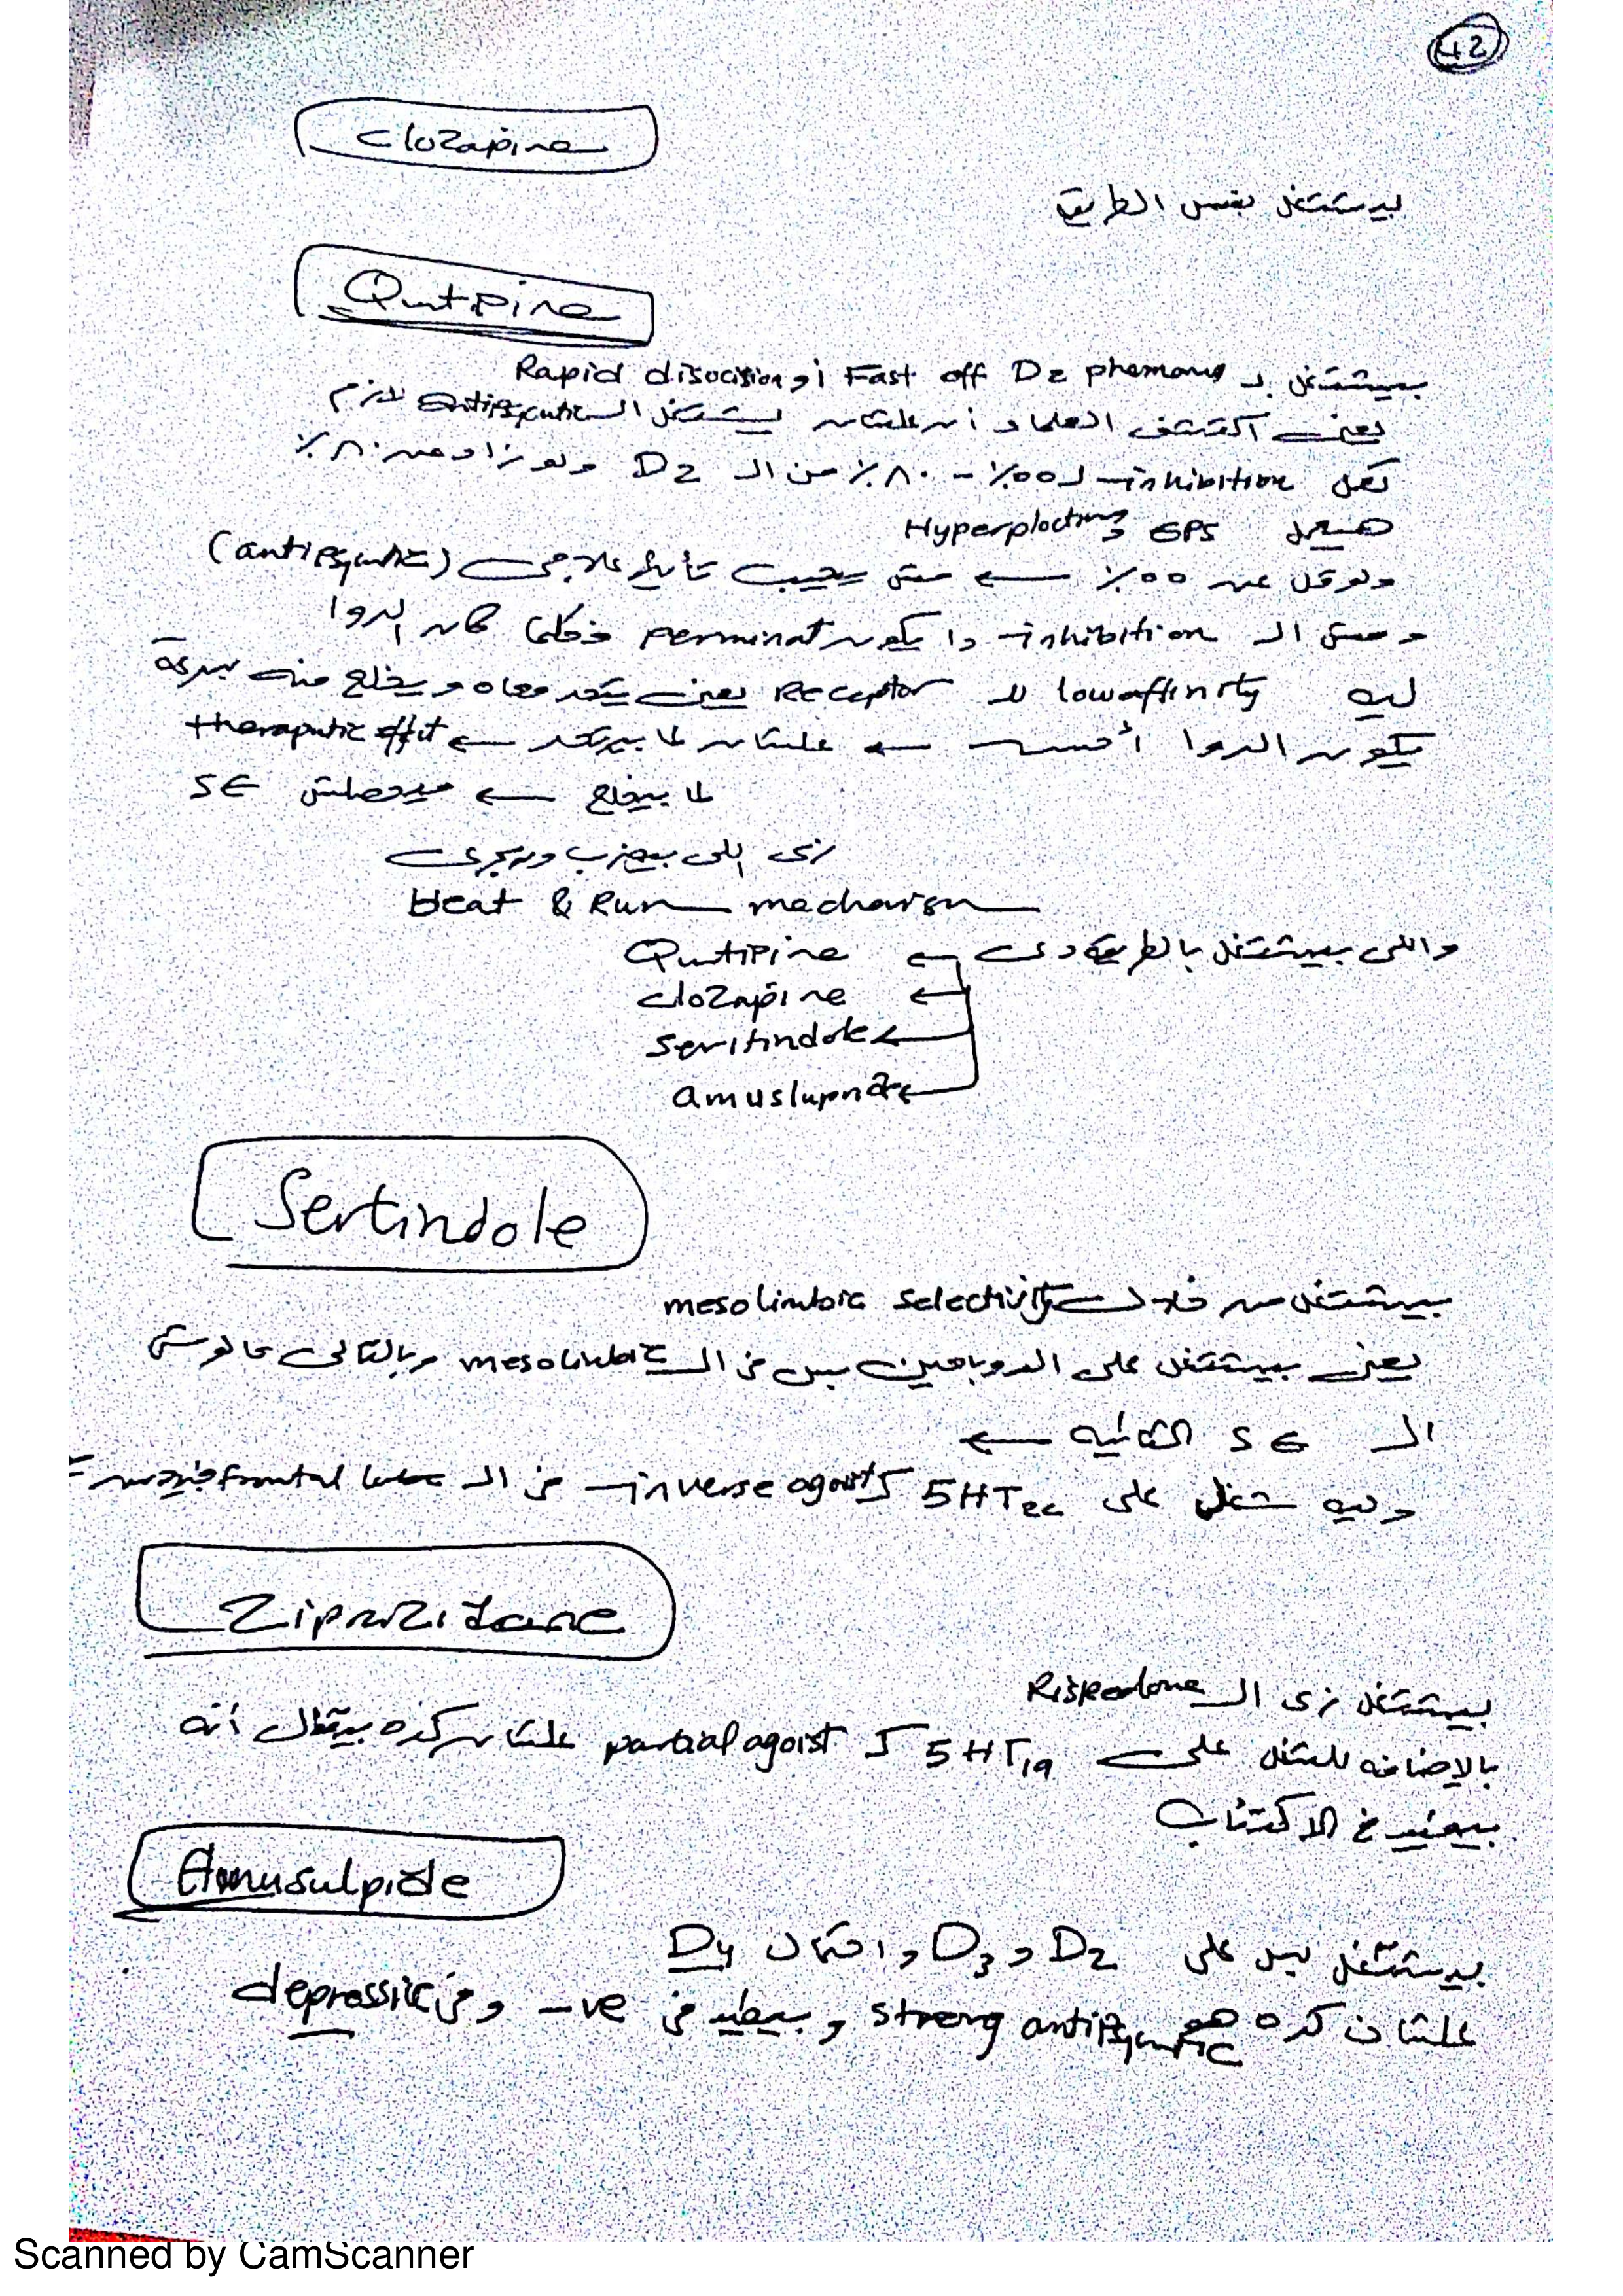 42
Clozapine
بيشتغل بنفس الطريقة
Qutipine
بيشتغل بـ Fast off D2 phemons أو Rapid disocision
يعني اكتشف العلماء أن علشان يشتغل الـ antipsycotic لازم
تعمل inhibition لـ ٥٥٪ - ٨٠٪ من الـ D2 ولو زاد عن ٨٠٪
هيعمل EPS و Hyperplocting
ولو قل عن ٥٥٪ ← مش يجيب تأثير علاجي (antipsycotic)
و مش الـ inhibition دا يكون perminat فكلما كان الدوا
ليه low affinity للـ Receptor يعني يتحد معاه و يخلع منه بسرعة
يكون الدوا أحسن ← علشان لما بيتحد ← theraputic effect
لما بيخلع ← ميحصلش SE
زي اللي بيضرب ويجري
Heat & Run mechanism
واللي بيشتغل بالطريقة دي ← Qutipine
← clozapine
← Seritindole
← amuslupride
Sertindole
بيشتغل من خلال mesolimbic selectivity
يعني بيشتغل على الدوبامين بس في الـ mesolimbic وبالتالي مالوش
الـ SE التانيه ←
و ليه شغل على 5HT2c كـ inverse agonist في الـ frontal lobe
Ziprazidone
بيشتغل زي الـ Rispedone
بالإضافه للشغل على 5HT1a كـ partial agoist علشان كده بيتقال أنه
بيفيد في الاكتئاب
Amusulpide
بيشتغل بس على D2 و D3 و احتمال D4
علشان كده هو strong antipsycotic و بيفيد في -ve و في depressive
Scanned by CamScanner